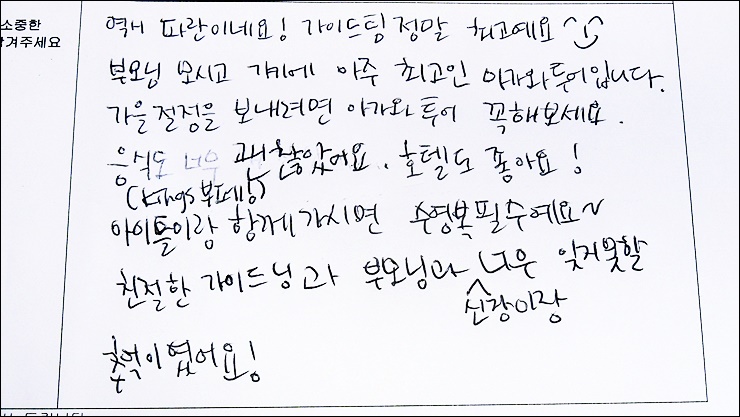 소중한
남겨주세요
역시 파란이네요! 가이드팀 정말 최고예요
부모님 모시고 가기에 아주 최고인 아가와투어입니다.
가을절정을 보내려면 아가와 투어 꼭해보세요.
음식도 너무 괜찮았어요. 호텔도 좋아요!
(Kings부페)
아이들이랑 함께가시면 수영복필수예요~
친절한 가이드님과 부모님과 너무 잊지못할
신랑이랑
추억이였어요!